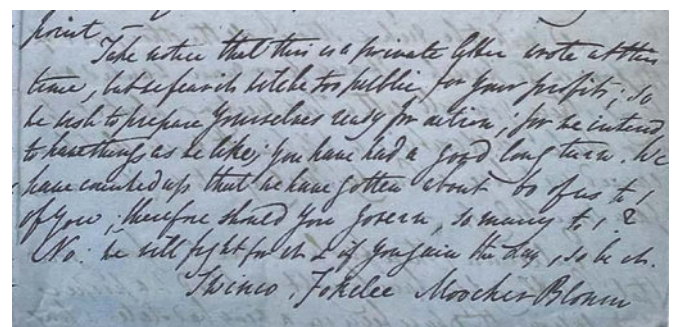 point –
Take notice that this is a private letter wrote at this
time, but we fear it will be too public for your profits; so
we wish to prepare yourselves ready for action; for we intend
to have things as we like; you have had a good long turn. We
have counted up that we have gotten about 60 of us to 1
of you; therefore should you govern, so many to 1?
No: we will fight for it & if you gain the day, so be it.